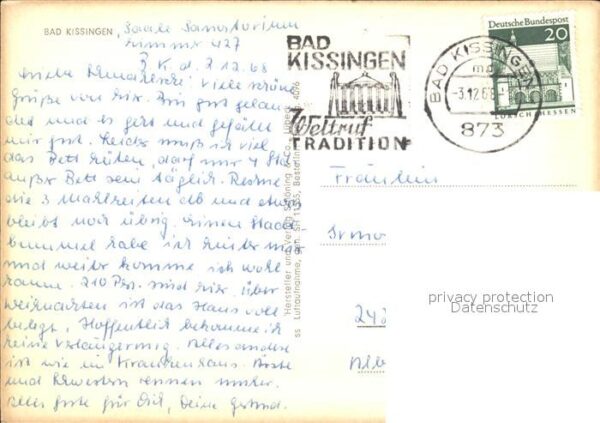 BAD KISSINGEN,
Saale Sanatorium
Zimmer 427
B. K. d. 2 12. 68
Viele schöne
Grüße von hier. Bin gut gelan
det und es geht und gefällt
mir gut. Leider muß ich viel
das Bett hüten, darf nur 4 Std
außer Bett sein täglich. Rechne
die 3 Mahlzeiten ab und etwas
bleibt noch übrig. Einen Stadt
bummel habe ich hinter mir
und weiter komme ich wohl
kaum. 210 Pers. sind hier, über
Weihnachten ist das Haus voll
belegt, Hoffentlich bekomme ich
keine Verlängerung. Alles andere
ist wie im Krankenhaus. Ärzte
und Schwestern rennen umher.
Alles Gute für Dich, Deine Gertrud.
Hersteller und Verlag Schöning & Co., Lübeck
ss Luftaufnahme, Gen. SH 1
BAD
KISSINGEN
Weltruf
TRADITION
BAD KISSINGEN
-3.12.68
873
Deutsche Bundespost
20
LORSCH/HESSEN
Fräulein
Irmg
privacy protection
Datenschutz